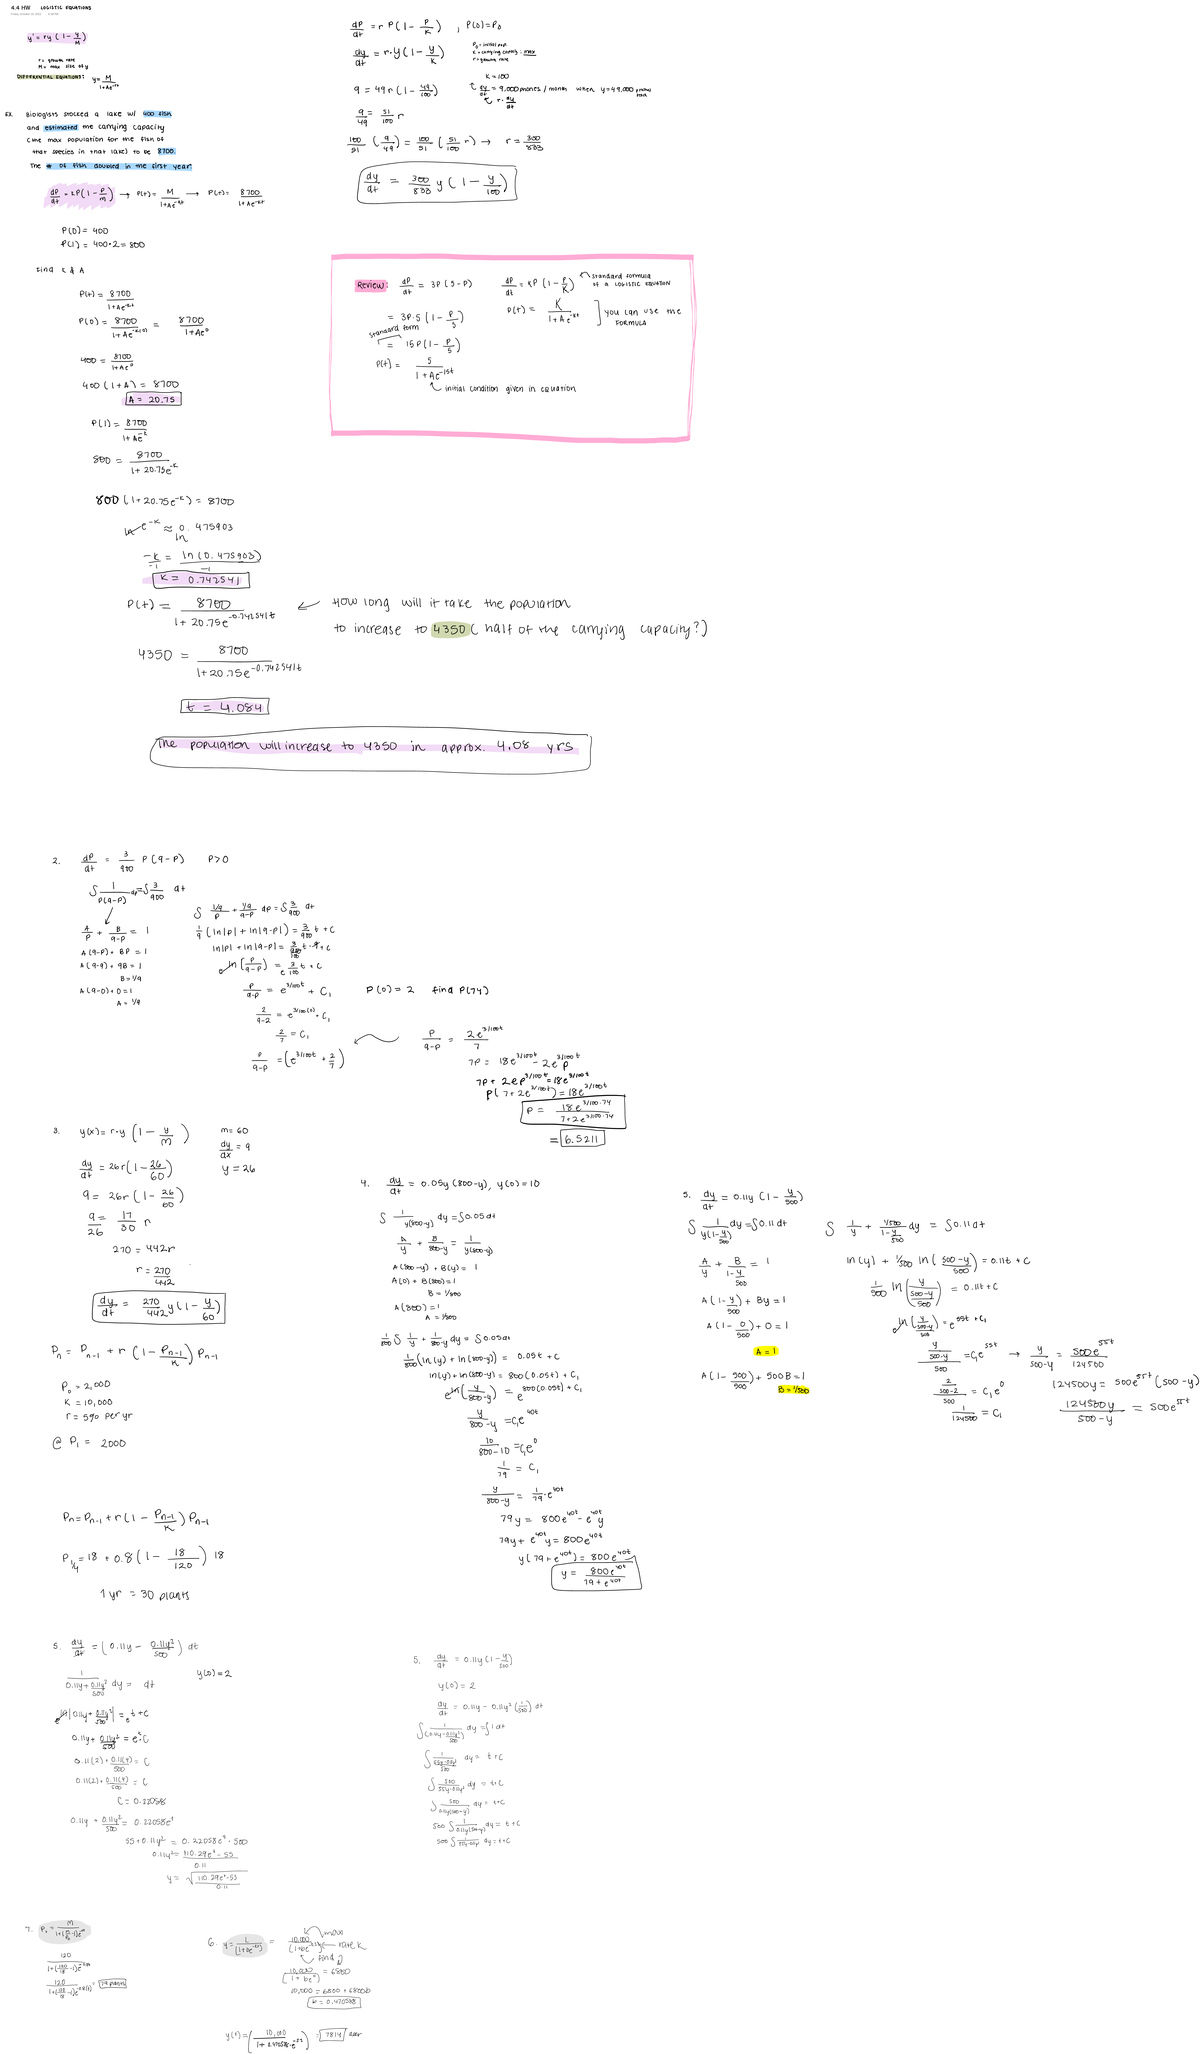 4.4 HW LOGISTIC EQUATIONS
y' = ry (1 - y/M)
r = growth rate
M = max size of y
DIFFERENTIAL EQUATIONS: y = M/(1+Ae^-rt)
EX. Biologists stocked a lake w/ 400 fish
and estimated the carrying capacity
(the max population for the fish of
that species in that lake) to be 8700.
The # of fish doubled in the first year.
dP/dt = kP(1 - P/M) → P(t) = M/(1+Ae^-kt) → P(t) = 8700/(1+Ae^-kt)
P(0) = 400
P(1) = 400·2 = 800
Find K & A
P(t) = 8700/(1+Ae^-kt)
P(0) = 8700/(1+Ae^-k(0)) = 8700/(1+Ae^0)
400 = 8700/(1+Ae^0)
400 (1+A) = 8700
A = 20.75
P(1) = 8700/(1+Ae^-k)
800 = 8700/(1+20.75e^-k)
800 (1+20.75e^-k) = 8700
ln e^-k ≈ 0.475903
ln
-k/-1 = ln(0.475903)/-1
K = 0.742541
P(t) = 8700/(1+20.75e^-0.742541t) ← How long will it take the population
to increase to 4350 (half of the carrying capacity?)
4350 = 8700/(1+20.75e^-0.742541t)
t = 4.084
The population will increase to 4350 in approx. 4.08 yrs
dP/dt = r P(1 - P/K), P(0) = P0
dy/dt = r·y(1 - y/K)
P0 = initial pop.
K = carrying capacity: max
r = growth rate
K = 100
9 = 49r(1 - 49/100)
dy/dt = 9,000 phones / month when y = 49,000
r· dy/dt
9/49 = 51/100 r
100/51 (9/49) = 100/51 (51/100 r) → r = 300/833
dy/dt = 300/833 y(1 - y/100)
REVIEW: dP/dt = 3P(5-P)
dP/dt = KP (1 - P/K) standard formula of a LOGISTIC EQUATION
= 3P·5(1 - P/5)
P(t) = K/(1+Ae^-kt) ] you can use the FORMULA
standard form
= 15P(1 - P/5)
P(t) = 5/(1+Ae^-15t)
initial condition given in equation
2. dP/dt = 3/900 P(9-P) P>0
∫ 1/P(9-P) dP = ∫ 3/900 dt
A/P + B/(9-P) = 1
A(9-P) + BP = 1
A(9-9) + 9B = 1
B = 1/9
A(9-0)+0 = 1
A = 1/9
∫ (1/9)/P + (1/9)/(9-P) dP = ∫ 3/900 dt
1/9 (ln|P| + ln|9-P|) = 3/900 t + C
ln|P| + ln|9-P| = 3/900 t·9 + C
100
ln(P/(9-P)) = e 3/100 t + C
P/(9-P) = e^3/100t + C1
P(0) = 2 find P(74)
2/(9-2) = e^3/100(0) · C1
2/7 = C1
P/(9-P) = (e^3/100t + 2/7)
P/(9-P) = 2e^3/100t / 7
7P = 18e^3/100t - 2e^3/100t P
7P + 2eP^3/100t = 18e^3/100t
P(7+2e^3/100t) = 18e^3/100t
P = 18e^3/100·74 / (7+2e^3/100·74)
= 6.5211
3. y(x) = r·y (1 - y/M)
M = 60
dy/dx = 9
y = 26
dy/dt = 26r(1 - 26/60)
9 = 26r(1 - 26/60)
9/26 = 17/30 r
270 = 442r
r = 270/442
dy/dt = 270/442 y(1 - y/60)
Pn = Pn-1 + r(1 - Pn-1/K) Pn-1
P0 = 2,000
K = 10,000
r = 5% per yr
@ P1 = 2000
Pn = Pn-1 + r(1 - Pn-1/K) Pn-1
P1/4 = 18 + 0.8(1 - 18/120) 18
1 yr = 30 plants
4. dy/dt = 0.05y(800-y), y(0) = 10
∫ 1/y(800-y) dy = ∫0.05dt
A/y + B/(800-y) = 1/y(800-y)
A(800-y) + B(y) = 1
A(0) + B(800) = 1
B = 1/800
A(800) = 1
A = 1/800
1/800 ∫ 1/y + 1/(800-y) dy = ∫0.05dt
1/800 (ln(y) + ln(800-y)) = 0.05t + C
ln(y) + ln(800-y) = 800(0.05t) + C1
e ln(y/(800-y)) = e^800(0.05t) + C1
y/(800-y) = C1e^40t
10/(800-10) = C1e^0
1/79 = C1
y/(800-y) = 1/79·e^40t
79y = 800e^40t - e^40t y
79y + e^40t y = 800e^40t
y(79+e^40t) = 800e^40t
y = 800e^40t / (79+e^40t)
5. dy/dt = 0.11y (1 - y/500)
∫ 1/y(1 - y/500) dy = ∫0.11dt
A/y + B/(1 - y/500) = 1
A(1 - y/500) + By = 1
A(1 - 0/500) + 0 = 1
A = 1
A(1 - 500/500) + 500B = 1
B = 1/500
∫ 1/y + (1/500)/(1 - y/500) dy = ∫0.11dt
ln(y) + 1/500 ln((500-y)/500) = 0.11t + C
1/500 ln(y/((500-y)/500)) = 0.11t + C
ln(y/((500-y)/500)) = e^55t + C1
y/((500-y)/500) = C1e^55t → y/(500-y) = 500e^55t/124500
2/((500-2)/500) = C1e^0
1/124500 = C1
124500y = 500e^55t (500-y)
124500y/(500-y) = 500e^55t
5. dy/dt = (0.11y - 0.11y²/500) dt
y(0) = 2
1/(0.11y + 0.11y²/500) dy = dt
ln|0.11y + 0.11y²/500| = e^t + C
0.11y + 0.11y²/500 = e^t·C
0.11(2) + 0.11(4)/500 = C
0.11(2) + 0.11(4)/500 = C
C = 0.22088
0.11y + 0.11y²/500 = 0.22058e^t
55 + 0.11y² = 0.22058e^t·500
0.11y² = 110.29e^t - 55
0.11
y = √(110.29e^t - 55 / 0.11)
5. dy/dt = 0.11y(1 - y/500)
y(0) = 2
dy/dt = 0.11y - 0.11y²(1/500) dt
∫ 1/(0.11y - 0.11y²/500) dy = ∫1dt
dy = t + C
∫ 500/(55y - 0.11y²) dy = t + C
∫ 500/0.11y(500-y) dy = t + C
500 ∫ 1/0.11y(500-y) dy = t + C
dy = t + C
7.
120
79 plants
6. y = L/(1+be^-kt) = 10,000
max
rate k
find b
10,000/(1+be^0) = 6800
10,000 = 6800 + 6800b
b = 0.470588
y(t) = = 7814